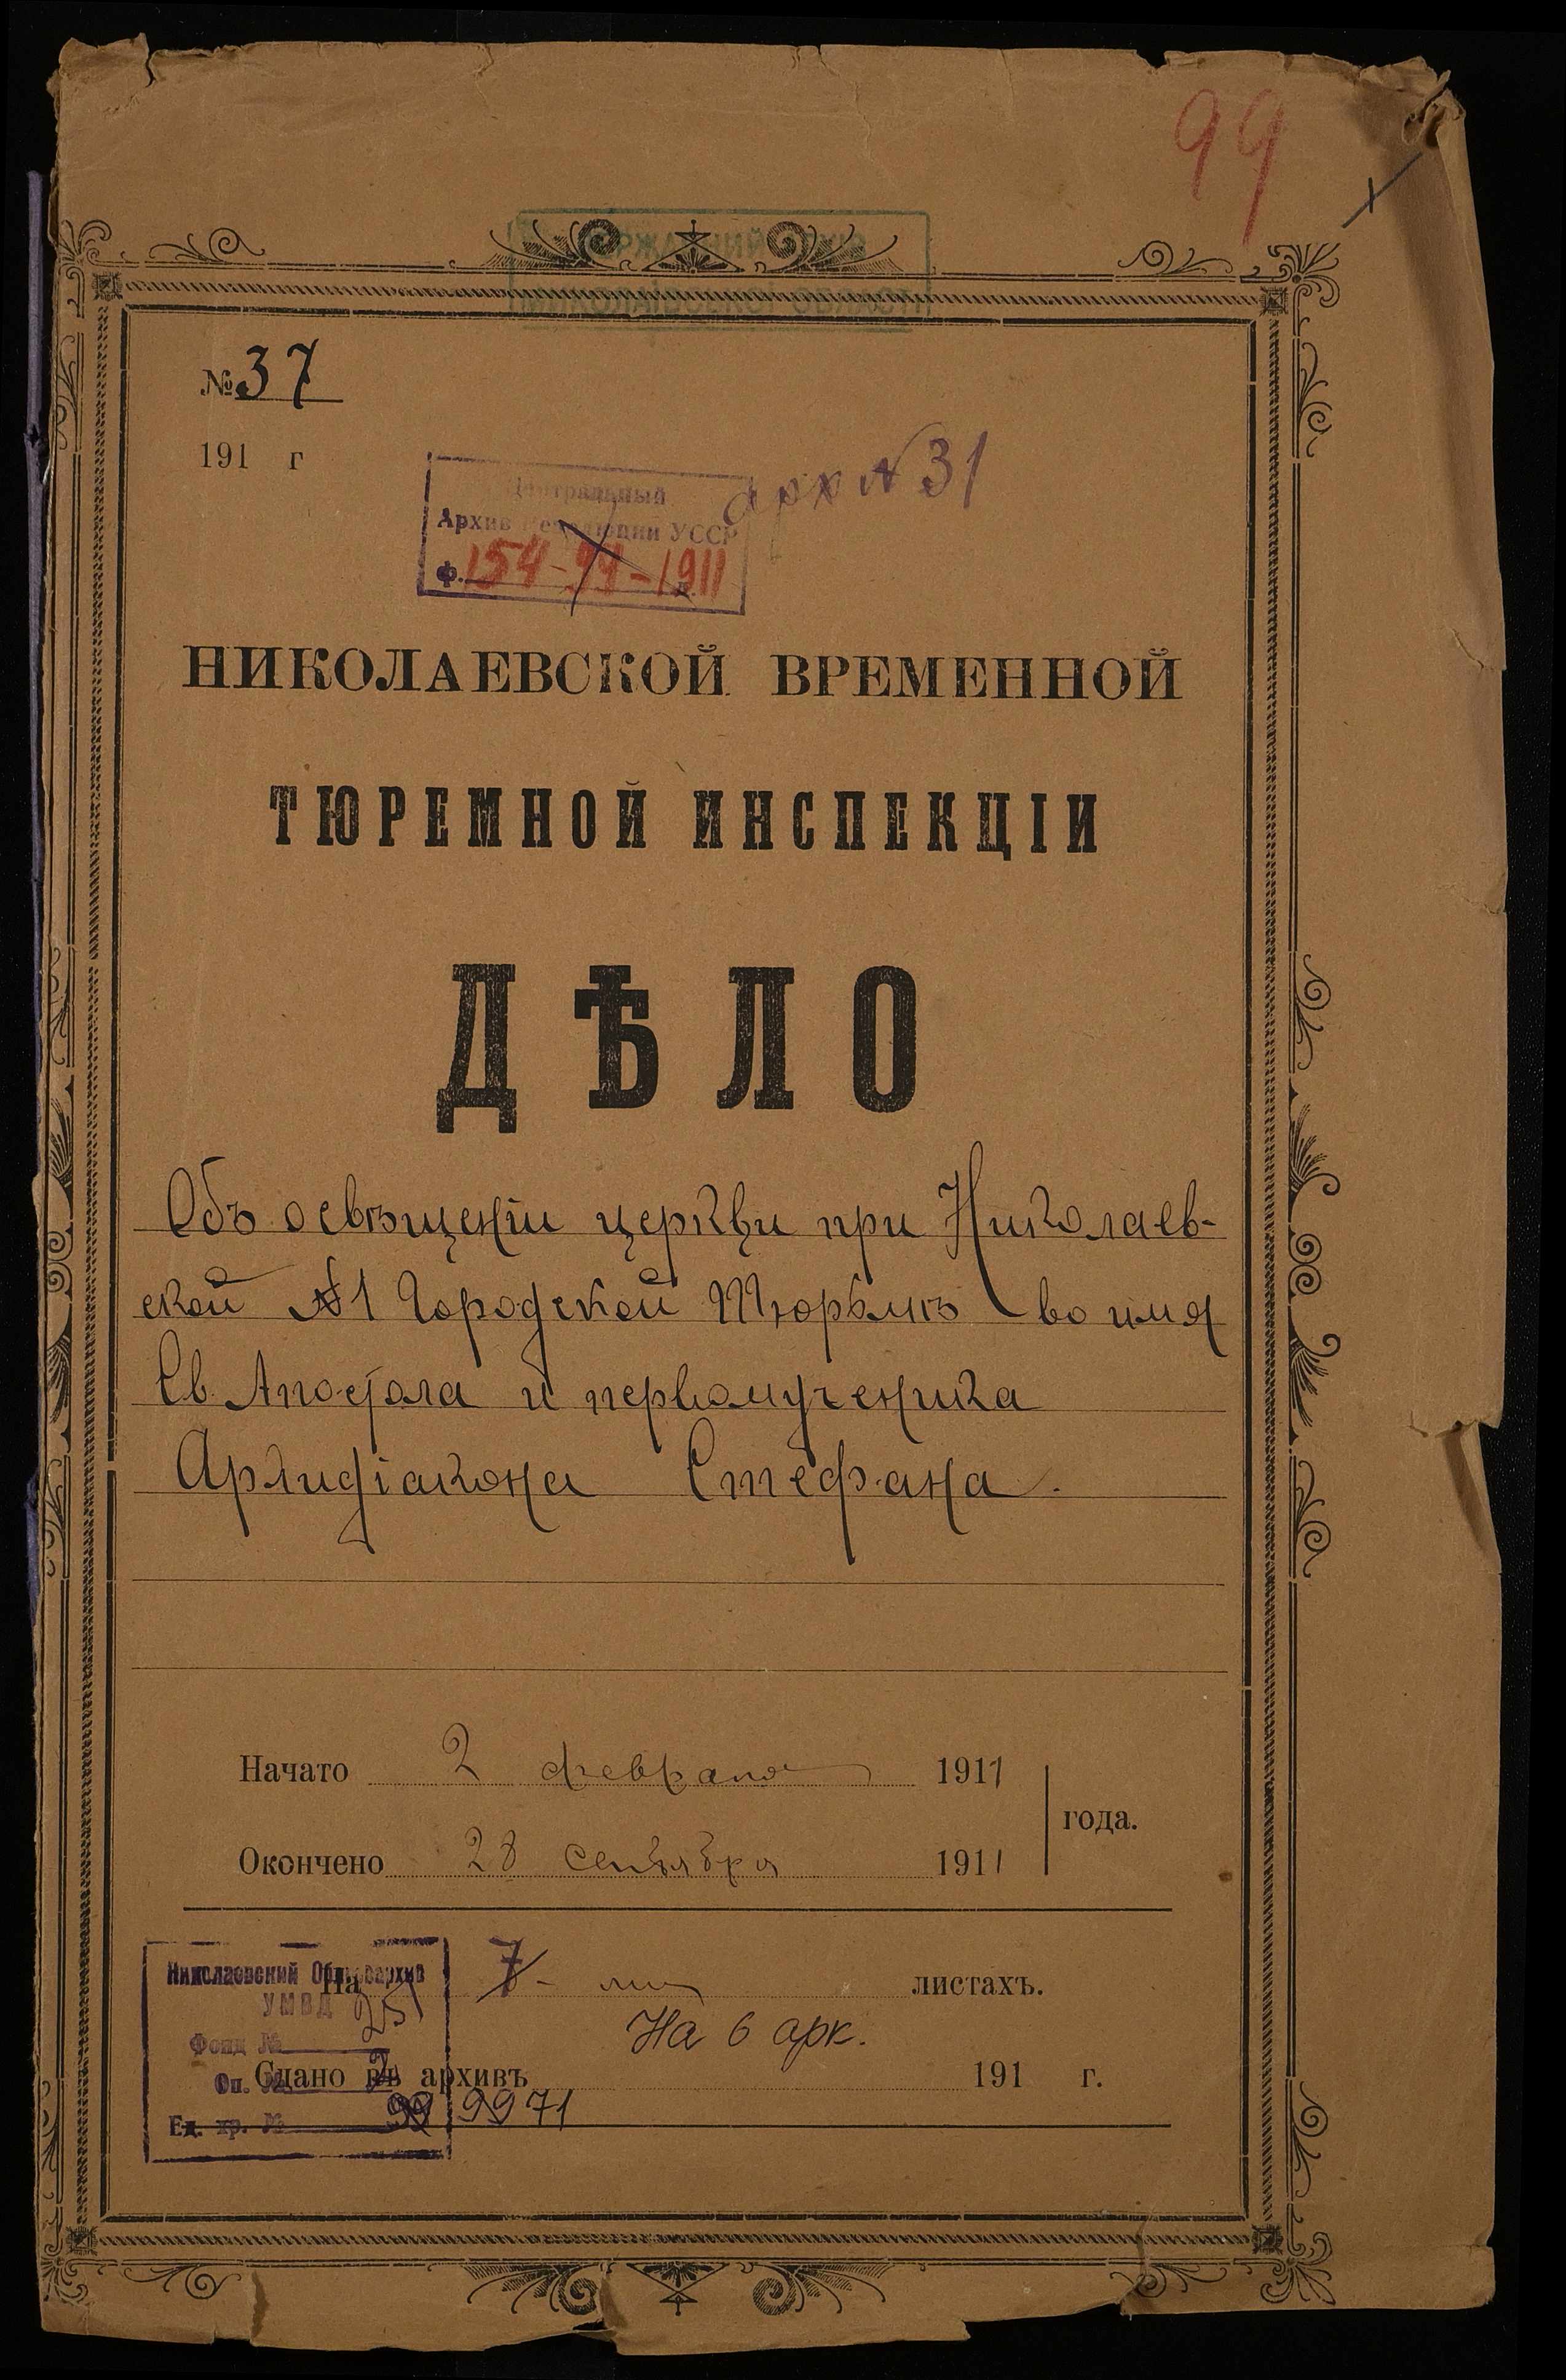 99
ДЕРЖАВНИЙ АРХІВ
МИКОЛАЇВСЬКОЇ ОБЛАСТІ
№ 37
191 г
арх № 31
Центральный
Архив Революции УССР
ф. 154-99-1911
НИКОЛАЕВСКОЙ ВРЕМЕННОЙ
ТЮРЕМНОЙ ИНСПЕКЦІИ
ДѢЛО
Объ освѣщеніи церкви при Николаев-
ской №1 Городской Тюрьмѣ во имя
Св. Апостола и первомученика
Архидіакона Стефана.
Начато 2 февраля 1911
года.
Окончено 28 сентября 1911
Николаевский Облгосархив
УМВД
На 7 - ми листахъ.
Фонд № 231
На 6 арк.
Оп. 2
Сдано въ архивъ 191 г.
Ед. хр. № 99 9971